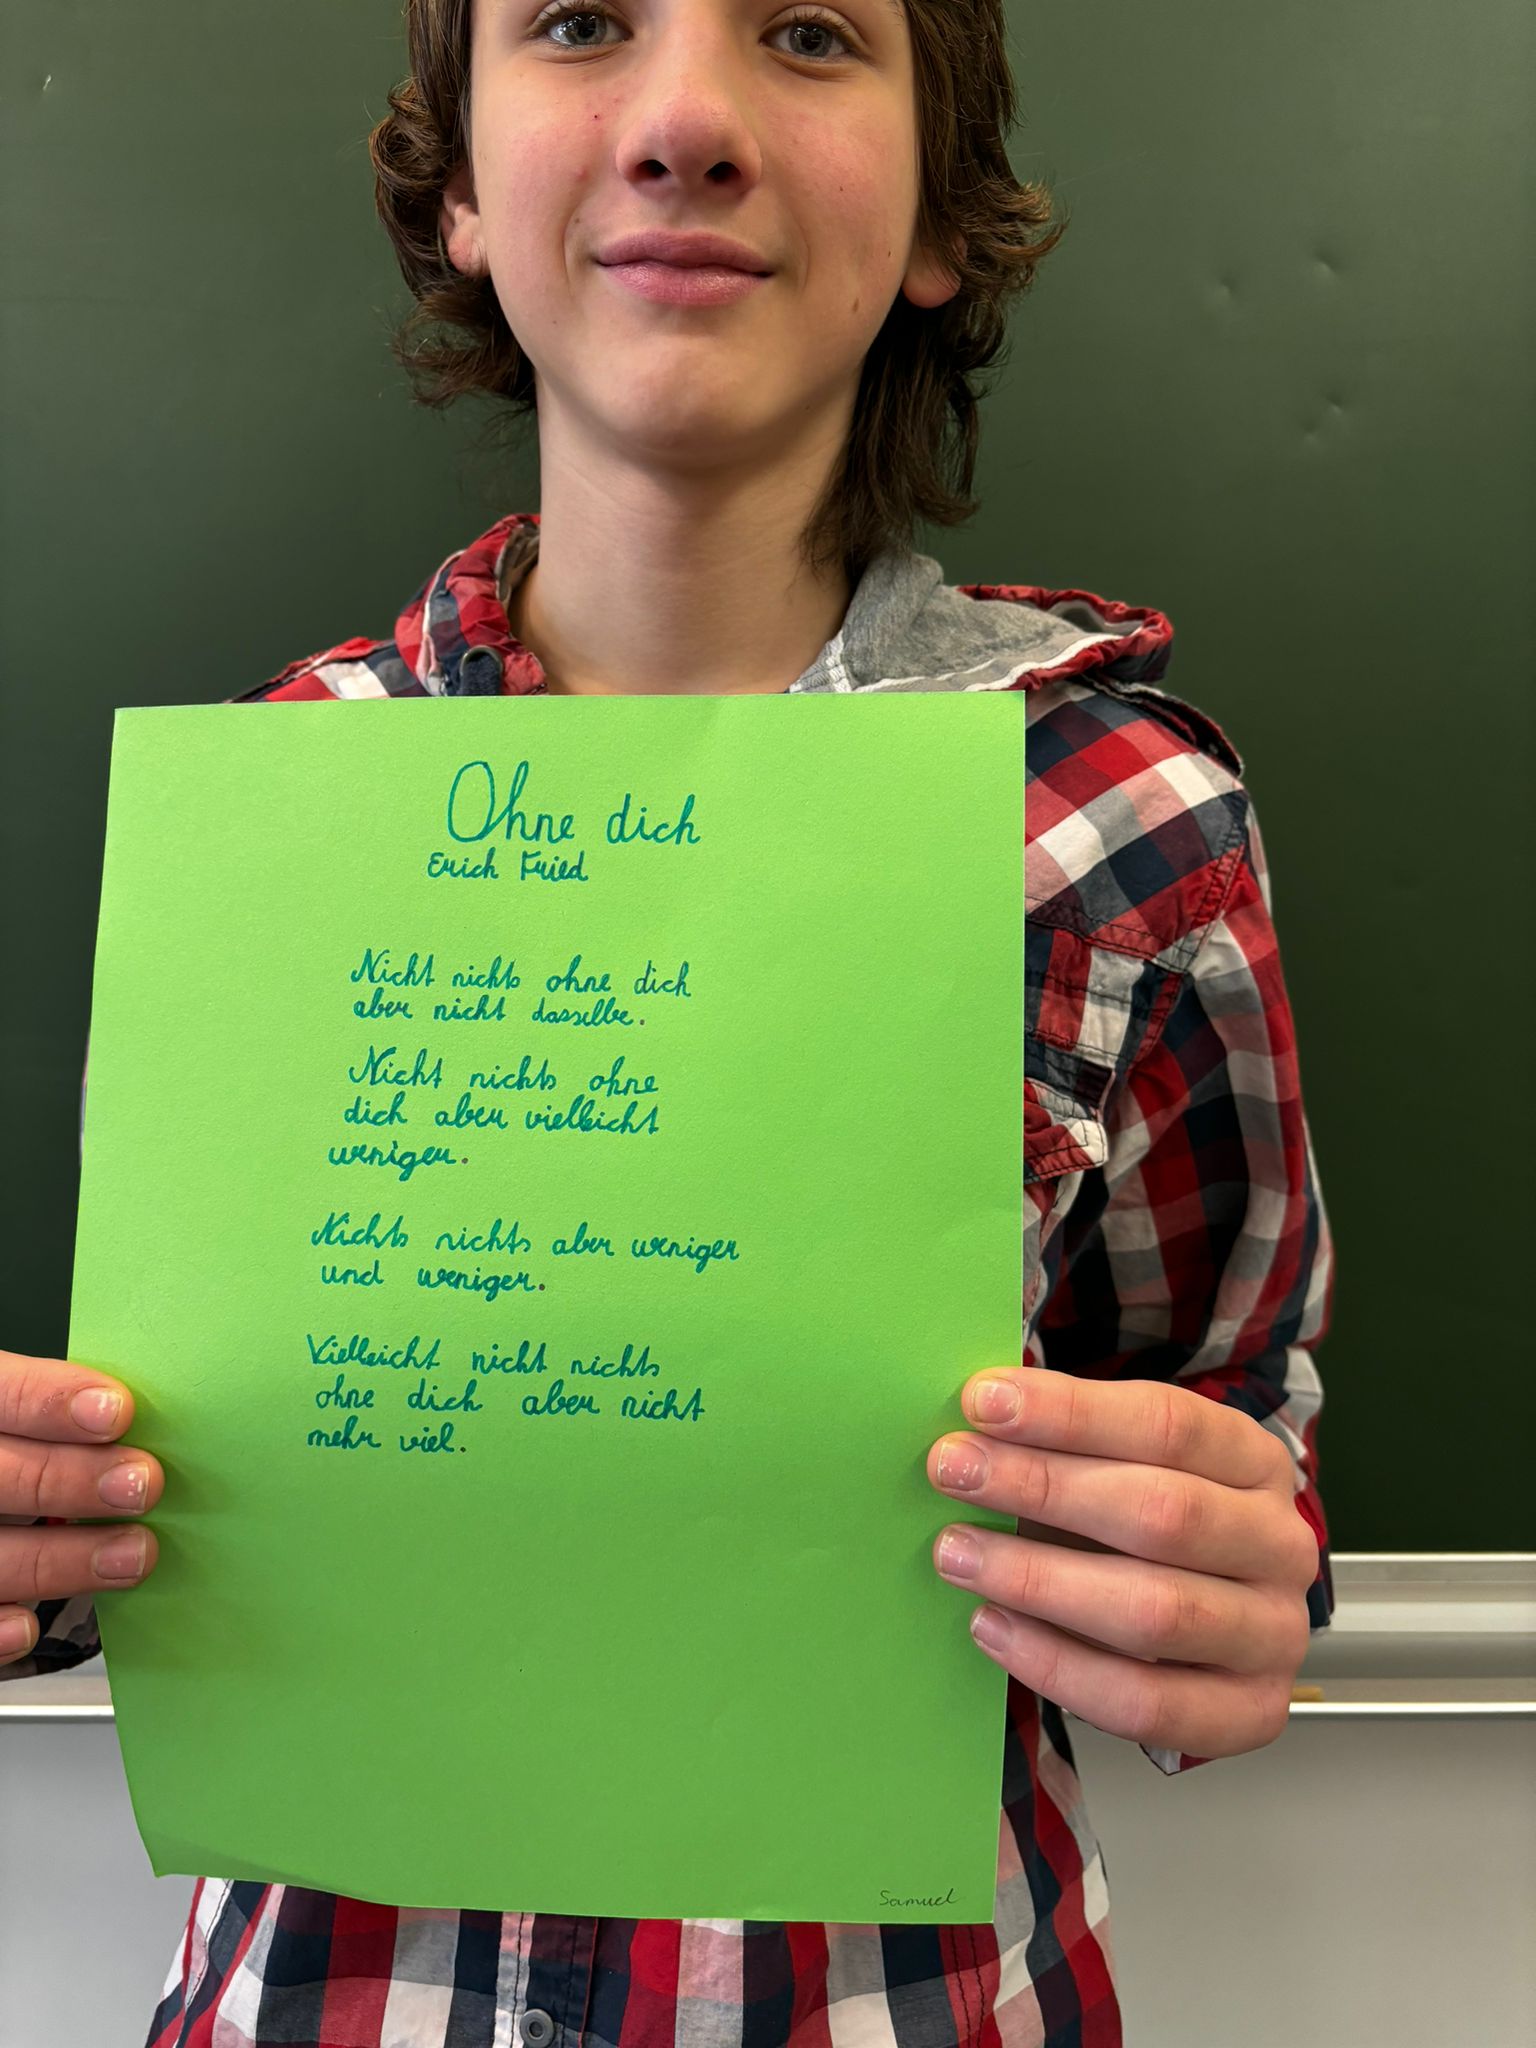 Ohne dich
Erich Fried
Nicht nichts ohne dich
aber nicht dasselbe.
Nicht nichts ohne
dich aber vielleicht
weniger.
Nichts nichts aber weniger
und weniger.
Vielleicht nicht nichts
ohne dich aber nicht
mehr viel.
Samuel